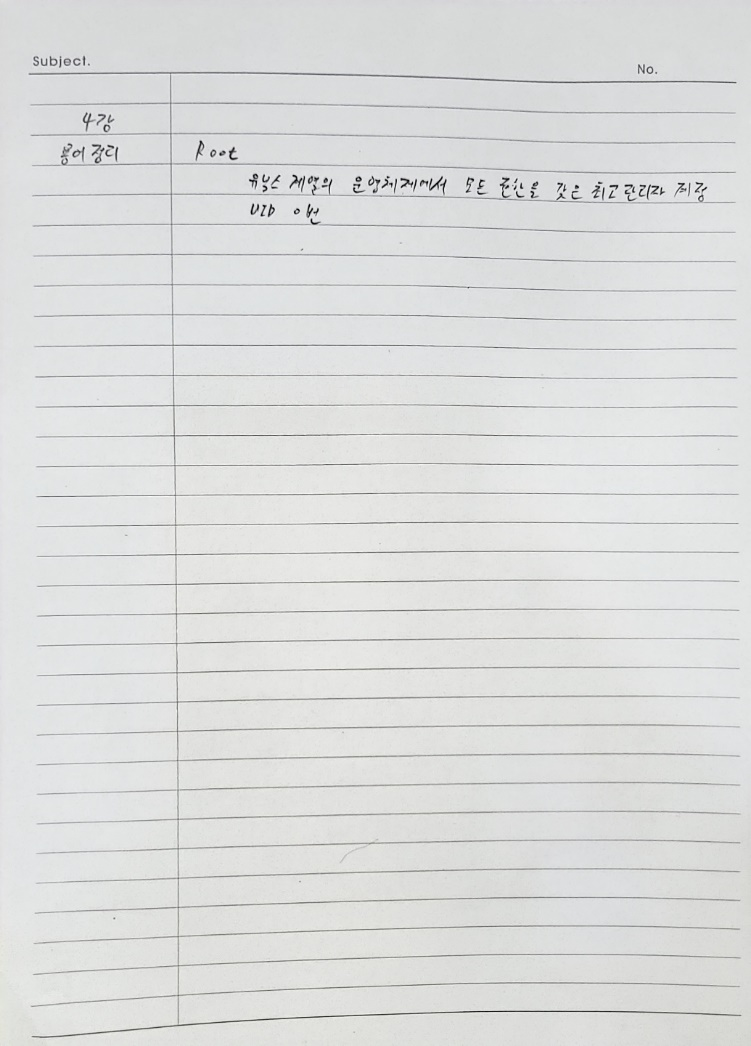 Subject.
No.
4강
용어 정리 Root
유닉스 계열의 운영체제에서 모든 권한을 갖은 최고 관리자 계정
UID 0번